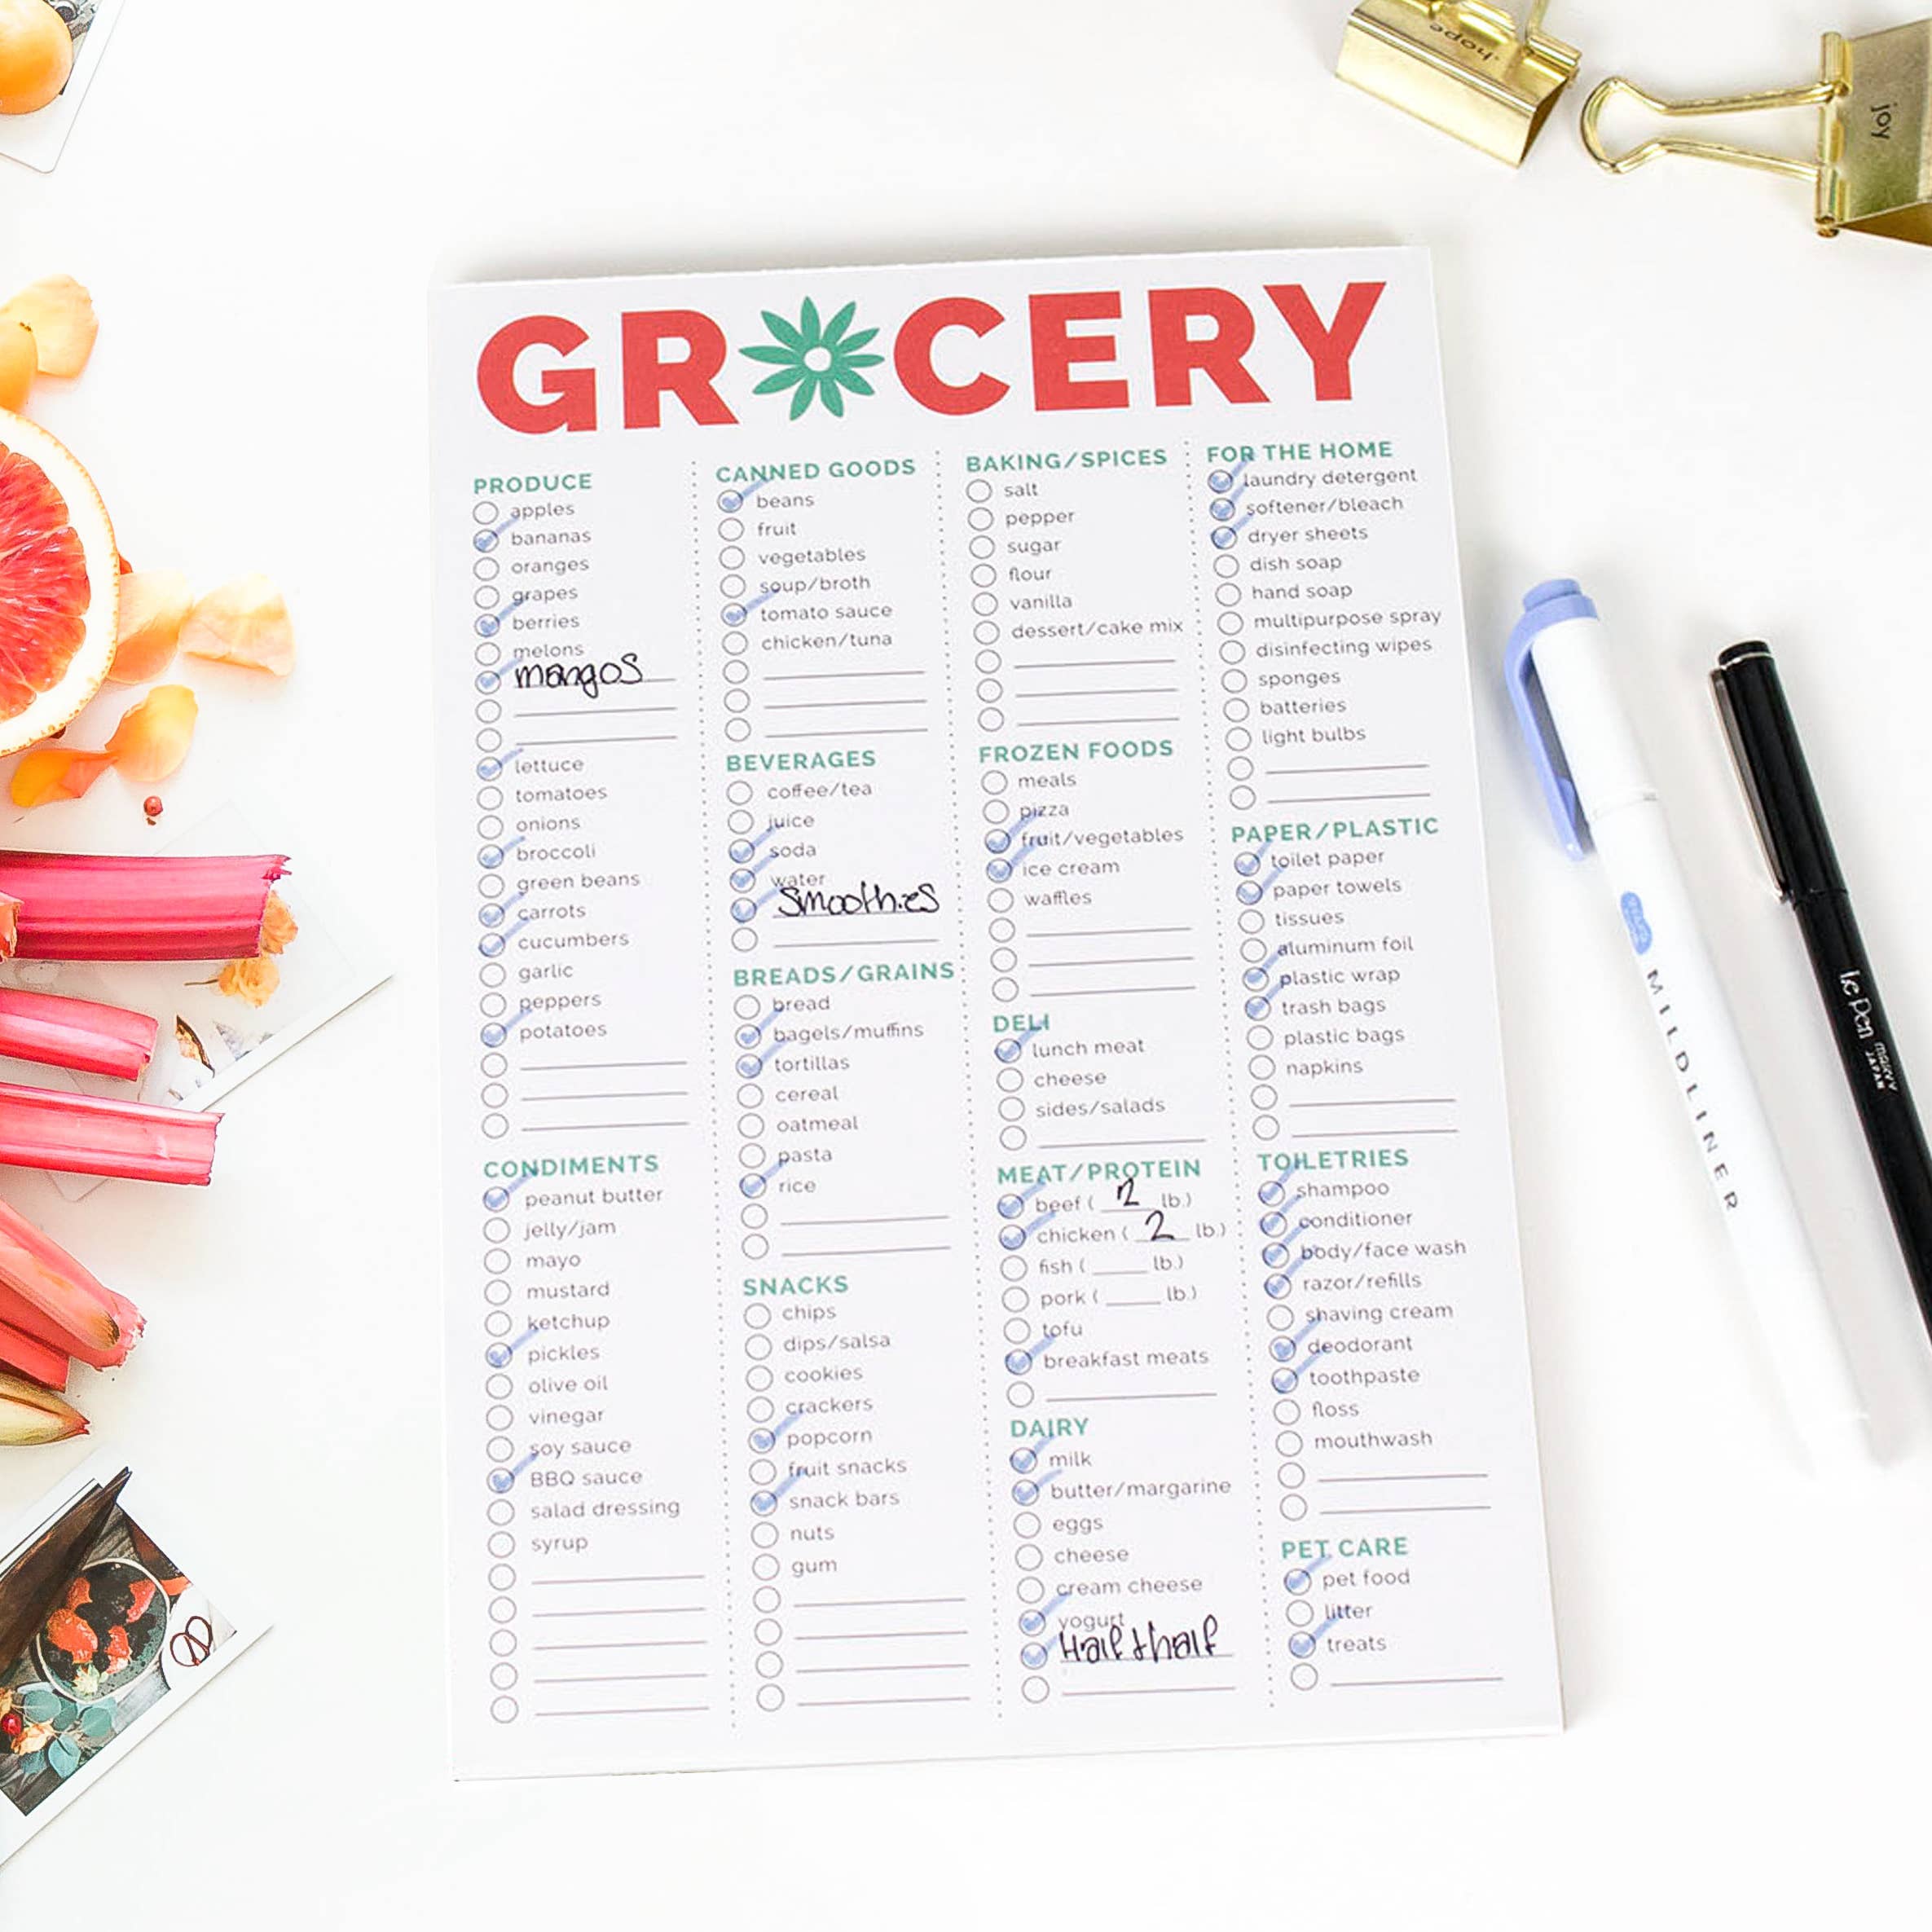 hope
joy
GROCERY
PRODUCE
apples
bananas
oranges
grapes
berries
melons
mangos
lettuce
tomatoes
onions
broccoli
green beans
carrots
cucumbers
garlic
peppers
potatoes
CONDIMENTS
peanut butter
jelly/jam
mayo
mustard
ketchup
pickles
olive oil
vinegar
soy sauce
BBQ sauce
salad dressing
syrup
CANNED GOODS
beans
fruit
vegetables
soup/broth
tomato sauce
chicken/tuna
BEVERAGES
coffee/tea
juice
soda
water
Smoothies
BREADS/GRAINS
bread
bagels/muffins
tortillas
cereal
oatmeal
pasta
rice
SNACKS
chips
dips/salsa
cookies
crackers
popcorn
fruit snacks
snack bars
nuts
gum
BAKING/SPICES
salt
pepper
sugar
flour
vanilla
dessert/cake mix
FROZEN FOODS
meals
pizza
fruit/vegetables
ice cream
waffles
DELI
lunch meat
cheese
sides/salads
MEAT/PROTEIN
beef ( 2 lb.)
chicken ( 2 lb.)
fish ( ____ lb.)
pork ( ____ lb.)
tofu
breakfast meats
DAIRY
milk
butter/margarine
eggs
cheese
cream cheese
yogurt
Half & half
FOR THE HOME
laundry detergent
softener/bleach
dryer sheets
dish soap
hand soap
multipurpose spray
disinfecting wipes
sponges
batteries
light bulbs
PAPER/PLASTIC
toilet paper
paper towels
tissues
aluminum foil
plastic wrap
trash bags
plastic bags
napkins
TOILETRIES
shampoo
conditioner
body/face wash
razor/refills
shaving cream
deodorant
toothpaste
floss
mouthwash
PET CARE
pet food
litter
treats
MILDLINER
le Pen
marvy
JAPAN